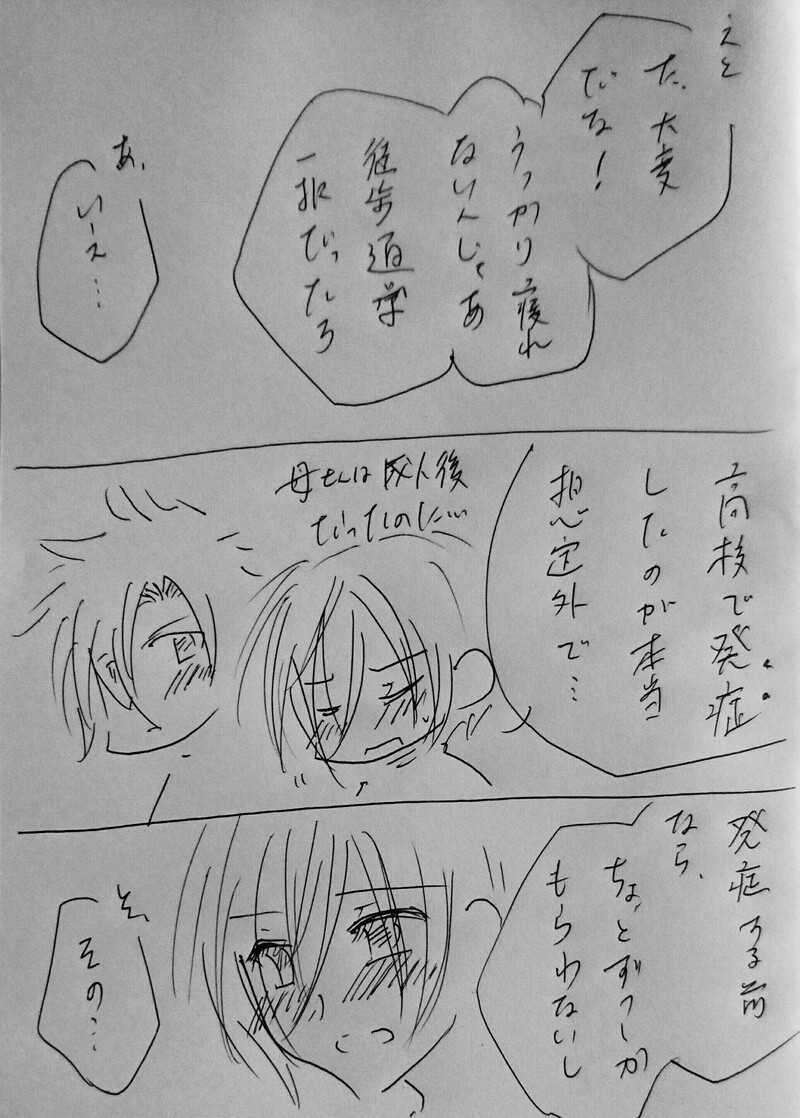 えと
た、大変
だな!
うっかり寝れ
ないんじゃあ
徒歩通学
一択だったろ
あ、
いーえ…
高校で発症
したのが本当
想定外で…
母さんは成人後
だったのに…
発症する前
なら、
ちょっとずつしか
もらわないし
そ、
その…